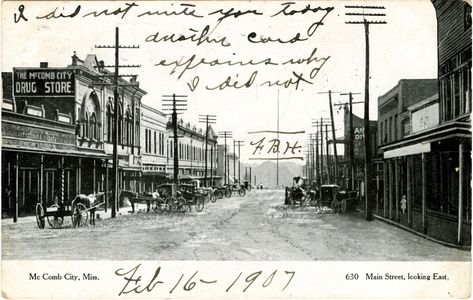 I did not write you today
another card
explains why
I did not
THE MCCOMB CITY
DRUG STORE
F.B.H.
Mc Comb City, Miss.
Feb 16-1907
630 Main Street, looking East.